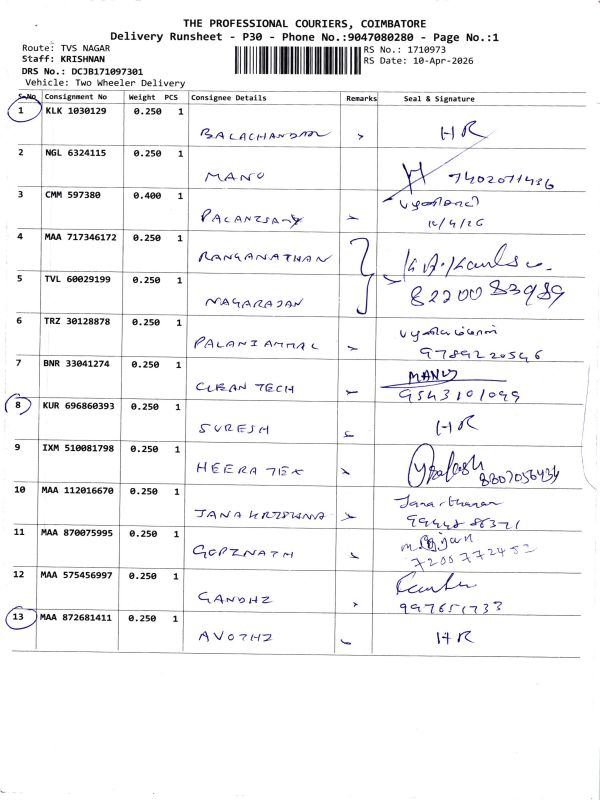 THE PROFESSIONAL COURIERS, COIMBATORE
Delivery Runsheet - P30 - Phone No.:9047080280 - Page No.:1
Route: TVS NAGAR
RS No.: 1710973
Staff: KRISHNAN
RS Date: 10-Apr-2026
DRS No.: DCJB171097301
Vehicle: Two Wheeler Delivery
S.No Consignment No Weight PCS Consignee Details Remarks Seal & Signature
1 KLK 1030129 0.250 1
BALACHANDAR HR
2 NGL 6324115 0.250 1
MANO 7402071436
3 CMM 597380 0.400 1
PALANISAMY
12/4/26
4 MAA 717346172 0.250 1
RANGANATHAN
5 TVL 60029199 0.250 1
NAGARAJAN 8220083989
6 TRZ 30128878 0.250 1
PALANIAMMAL 9789220546
7 BNR 33041274 0.250 1
MANOJ
CLEAN TECH 9543101099
8 KUR 696860393 0.250 1
SURESH HR
9 IXM 510081798 0.250 1
HEERA TEX 8807056434
10 MAA 112016670 0.250 1
Janarthanan
JANAKRISHNA
11 MAA 870075995 0.250 1
GOPINATH 7200772452
12 MAA 575456997 0.250 1
GANDHI 997651733
13 MAA 872681411 0.250 1
AVOTHI HR